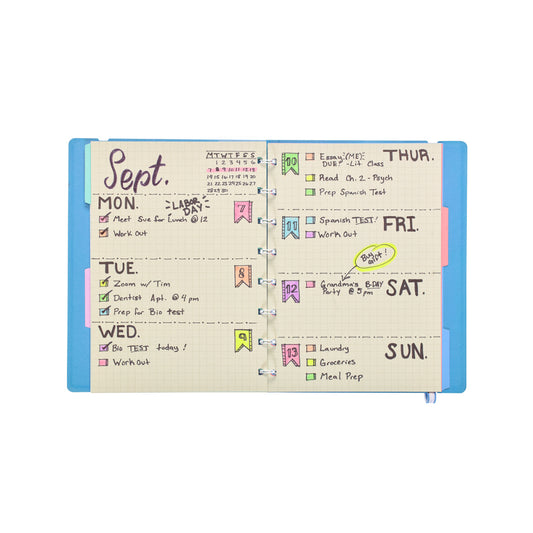 Sept.
M T W T F S S
1 2 3 4 5 6
7 8 9 10 11 12 13
14 15 16 17 18 19 20
21 22 23 24 25 26 27
28 29 30
MON.
LABOR
DAY
7
Meet Sue for Lunch @ 12
Work Out
TUE.
8
Zoom w/ Tim
Dentist Apt. @ 4 pm
Prep for Bio test
WED.
9
Bio TEST today!
Work out
10
THUR.
Essay (ME)
DUE! - Lit Class
Read Ch. 2 - Psych
Prep Spanish Test
11
FRI.
Spanish TEST!
Work Out
Buy
gift!
12
SAT.
Grandma's B-DAY
Party @ 5 pm
13
SUN.
Laundry
Groceries
Meal Prep